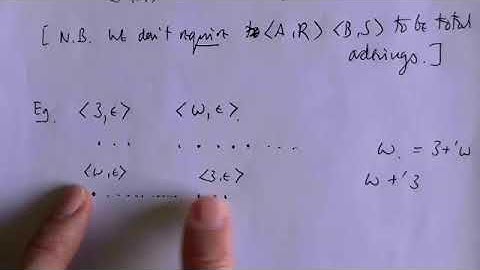 [ N.B. We don't require <A,R> <B,S> to be total
orderings. ]
Eg. <3,ε> <ω,ε>.
... ......
ω. = 3+'ω
<ω,ε> <3,ε>
ω +' 3